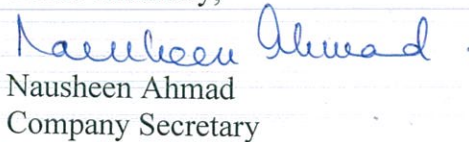 Nausheen Ahmad
Nausheen Ahmad
Company Secretary